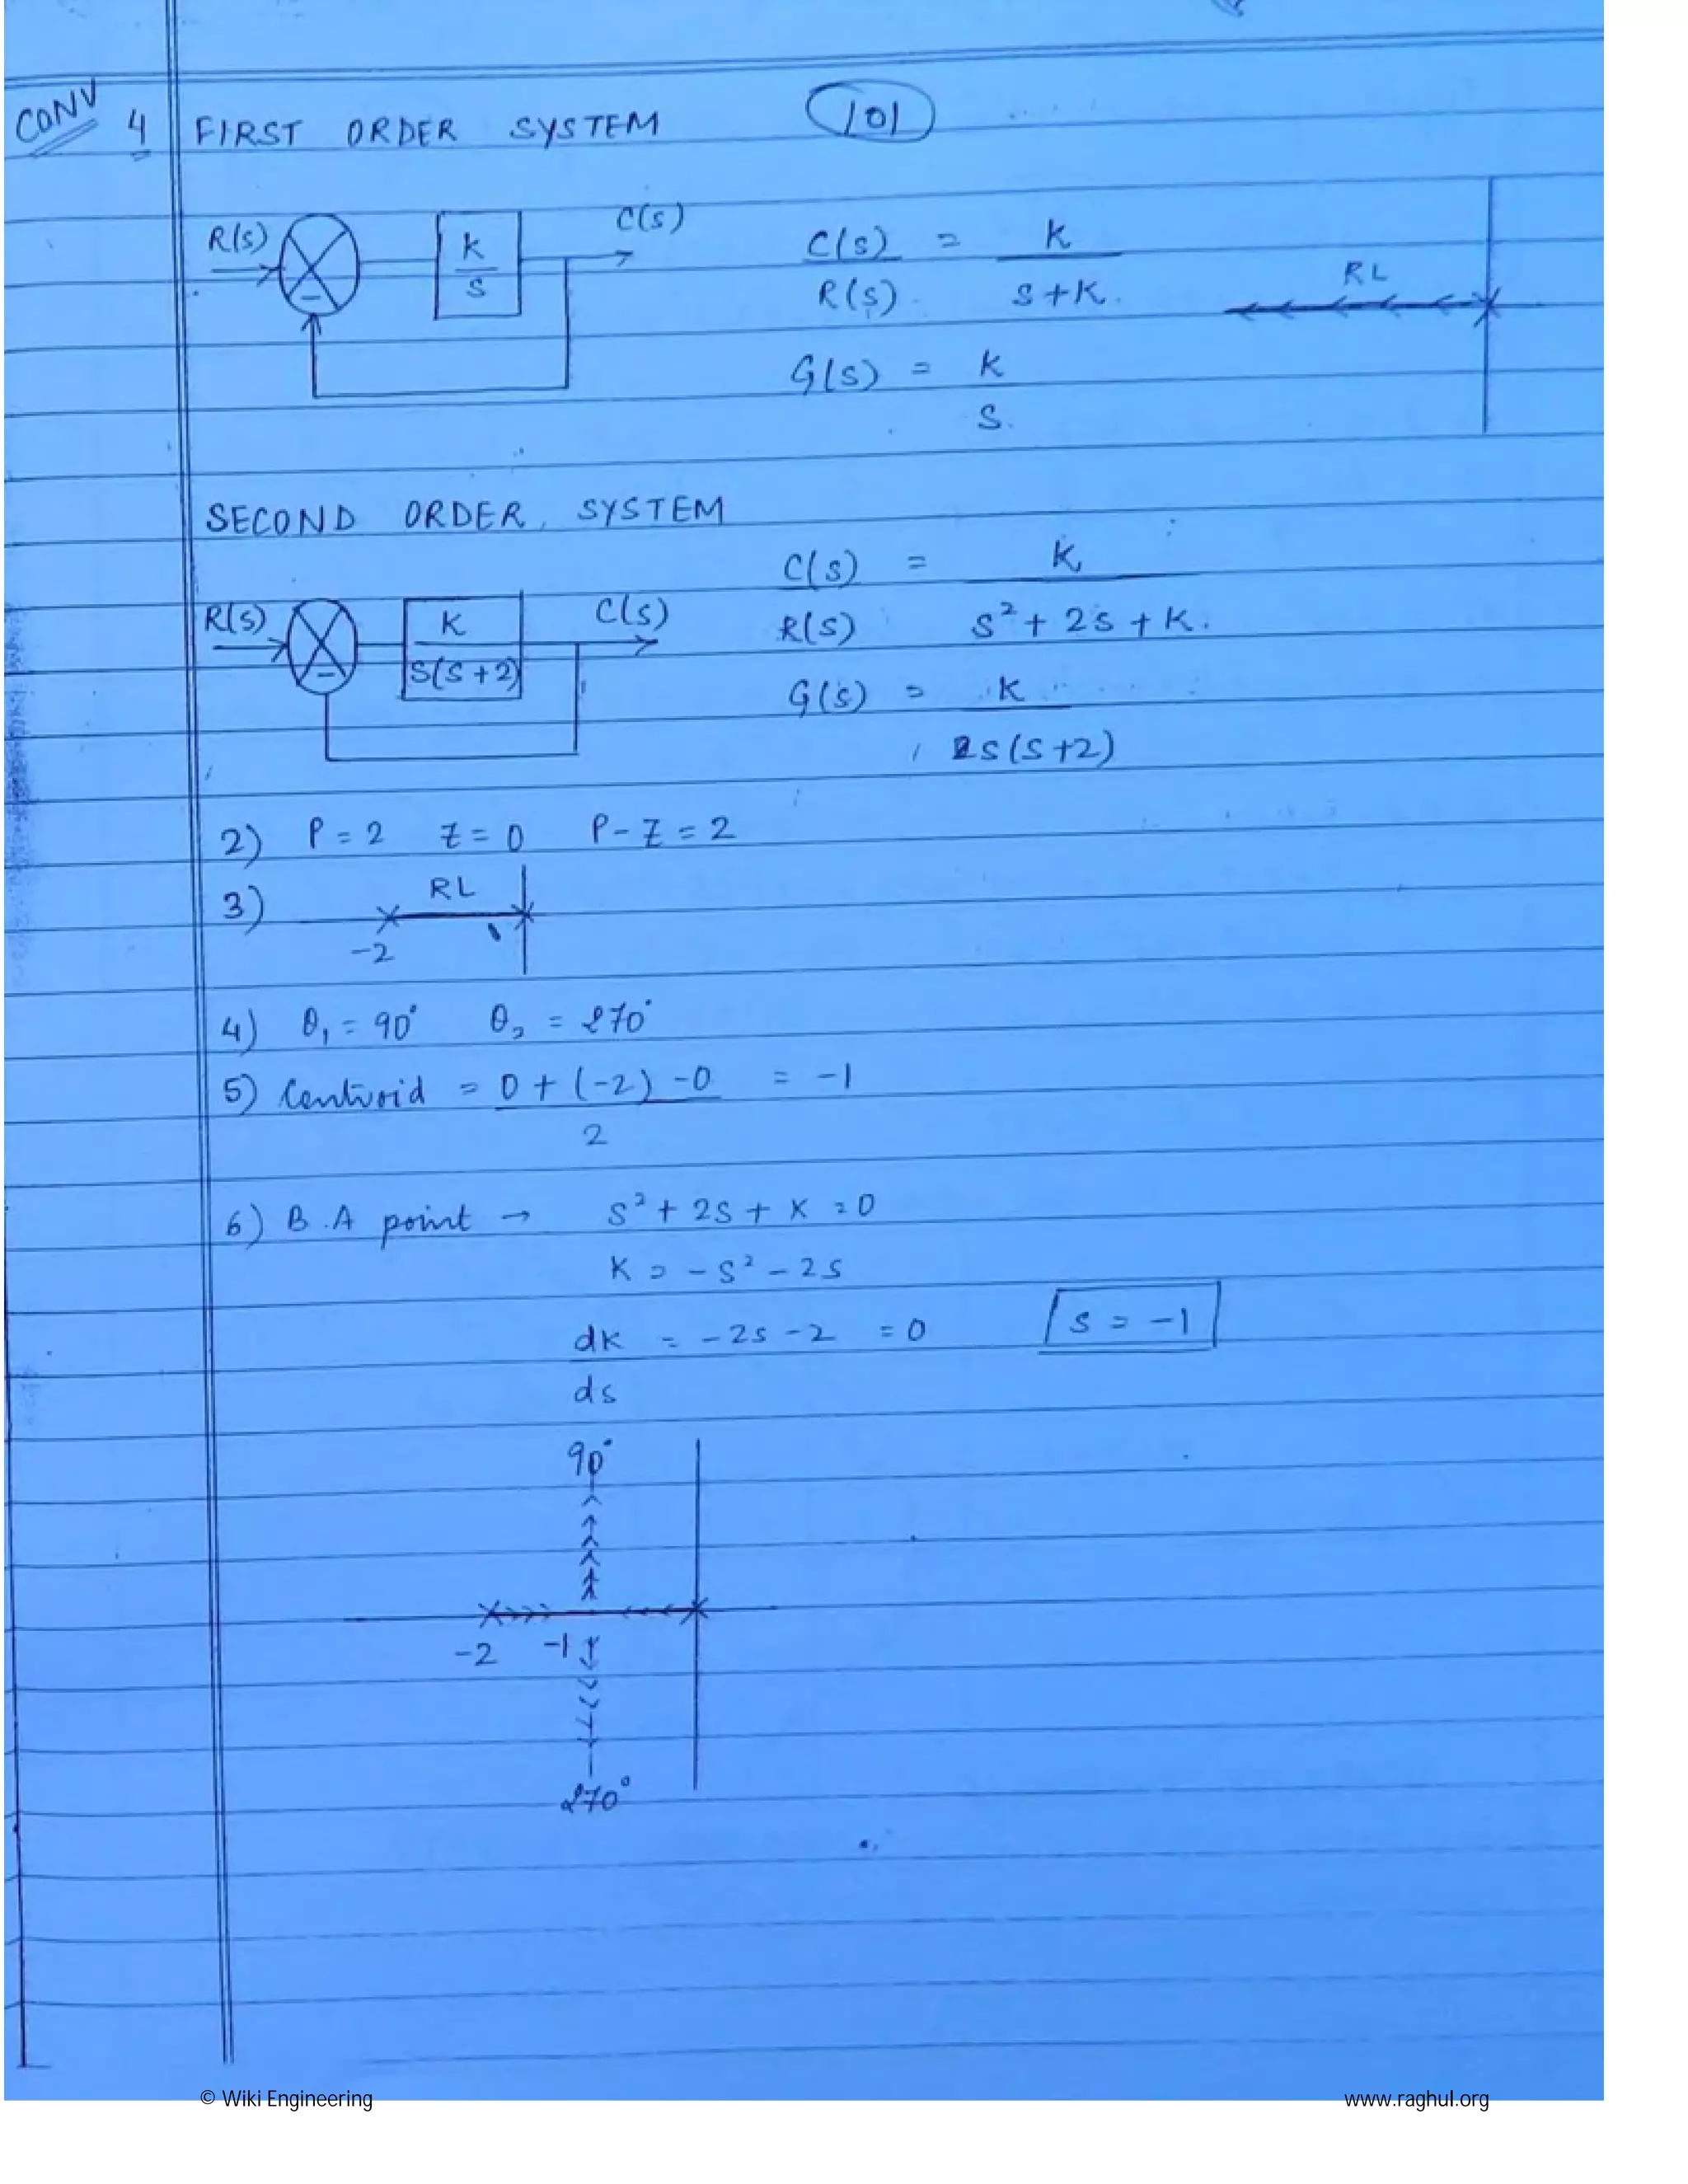 CONV 4 FIRST ORDER SYSTEM 101
R(s) - K/S C(s)
C(s)/R(s) = K/(S+K.)
RL
G(s) = K/S.
SECOND ORDER SYSTEM
R(s) - K/S(S+2) C(s)
C(s)/R(s) = K/(S²+2S+K.)
G(s) = K/S(S+2)
2) P=2 Z=0 P-Z=2
3) RL
-2
4) θ₁ = 90° θ₂ = 270°
5) Centroid = 0+(-2)-0/2 = -1
6) B.A point → S²+2S+K=0
K = -S²-2S
dK/ds = -2s-2 = 0 S = -1
90°
-2 -1
270°
© Wiki Engineering www.raghul.org